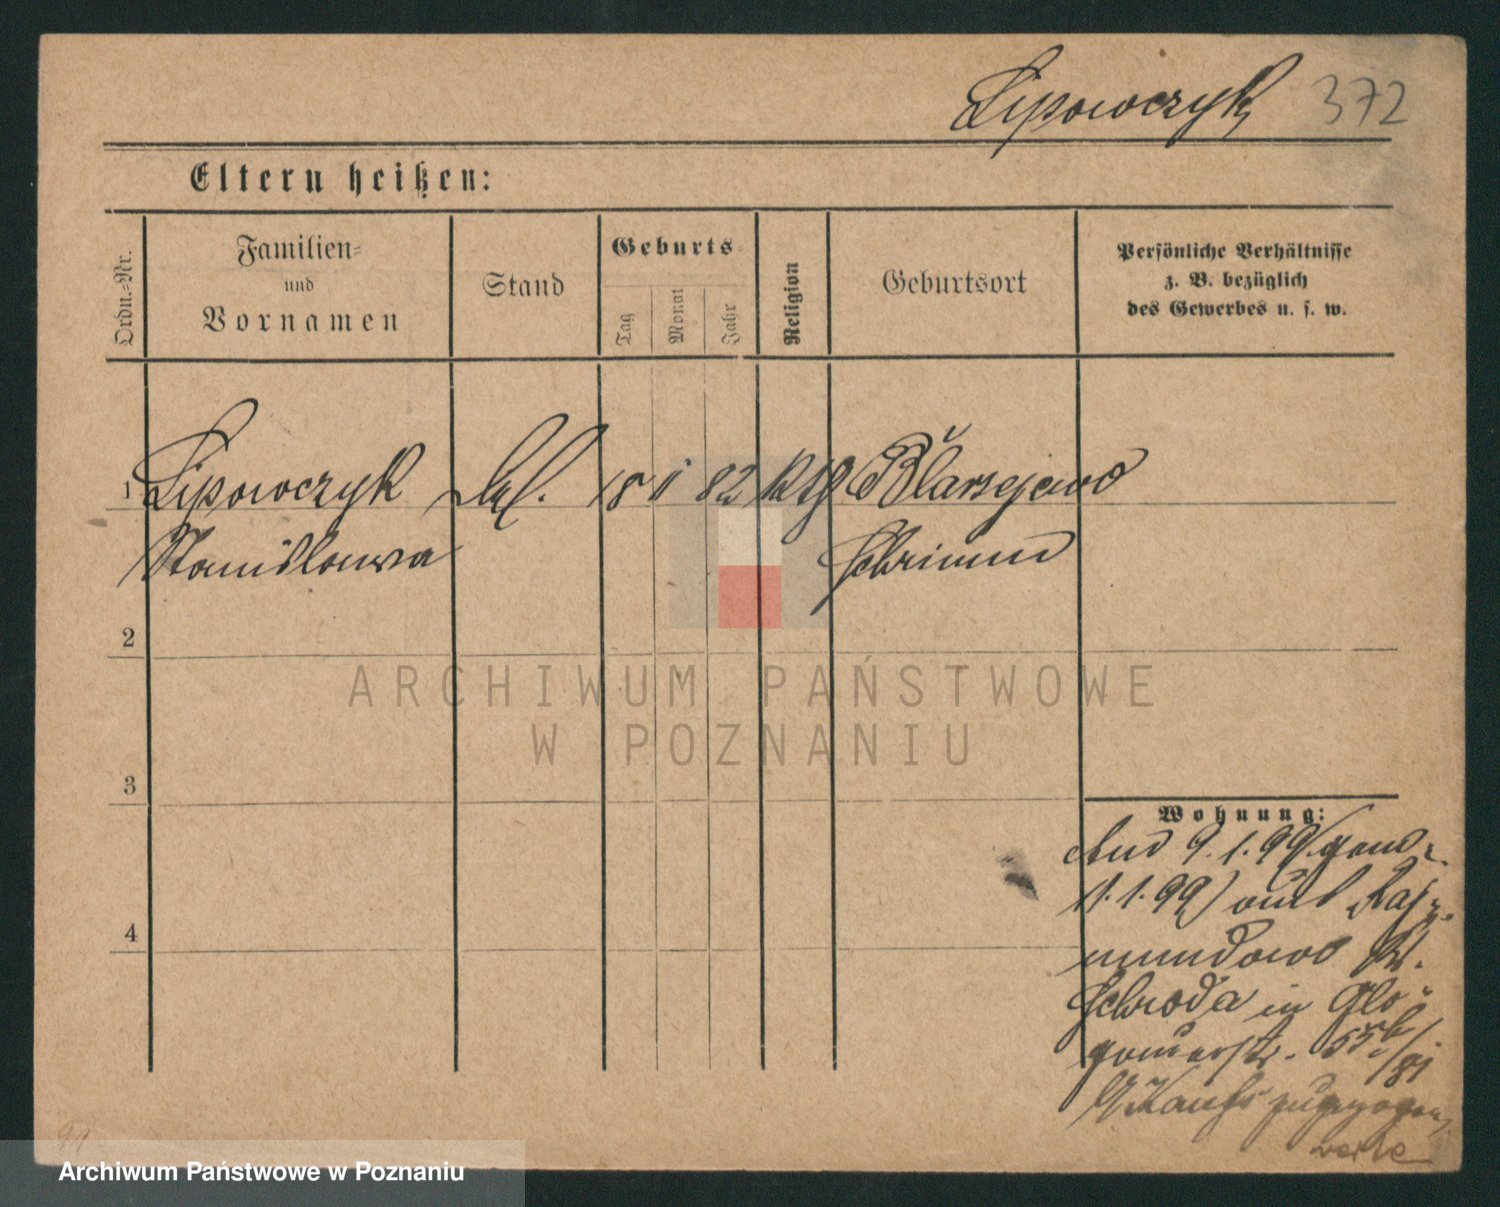 Lipowczyk 372
Eltern heißen:
Ordn.-Nr.
Familien-
und
Vornamen
Stand
Geburts
Tag
Monat
Jahr
Religion
Geburtsort
Persönliche Verhältnisse
z. B. bezüglich
des Gewerbes u. s. w.
1 Lipowczyk led. 18 82 kth Błazejewo
Stanislawa Schrimm
2
3
4
Wohnung:
9.1.99 (gem.
11.1.99) aus Raj-
mundowo Kr.
Schroda in Glo-
gauerstr.
zugezogen
ARCHIWUM PAŃSTWOWE
W POZNANIU
Archiwum Państwowe w Poznaniu